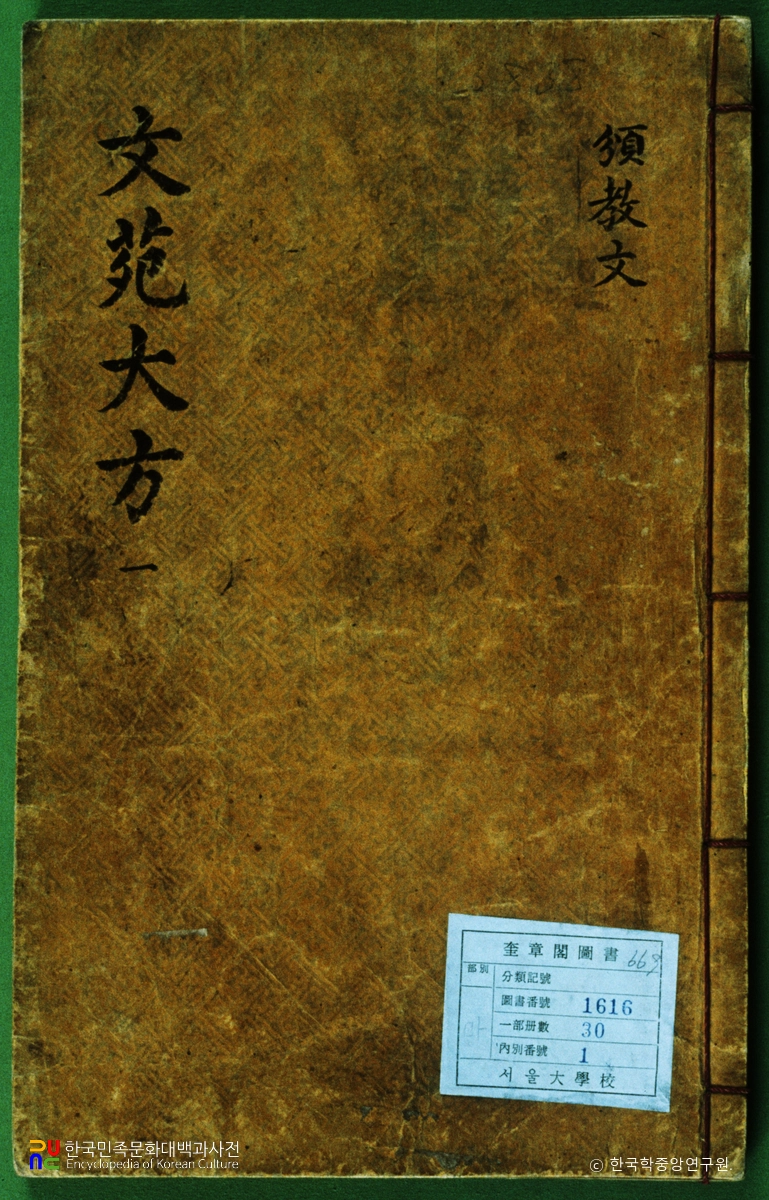 頒教文
文苑大方 一
奎章閣圖書
部別
分類記號
圖書番號 1616
一部册數 30
內別番號 1
서울大學校
한국민족문화대백과사전
Encyclopedia of Korean Culture
© 한국학중앙연구원